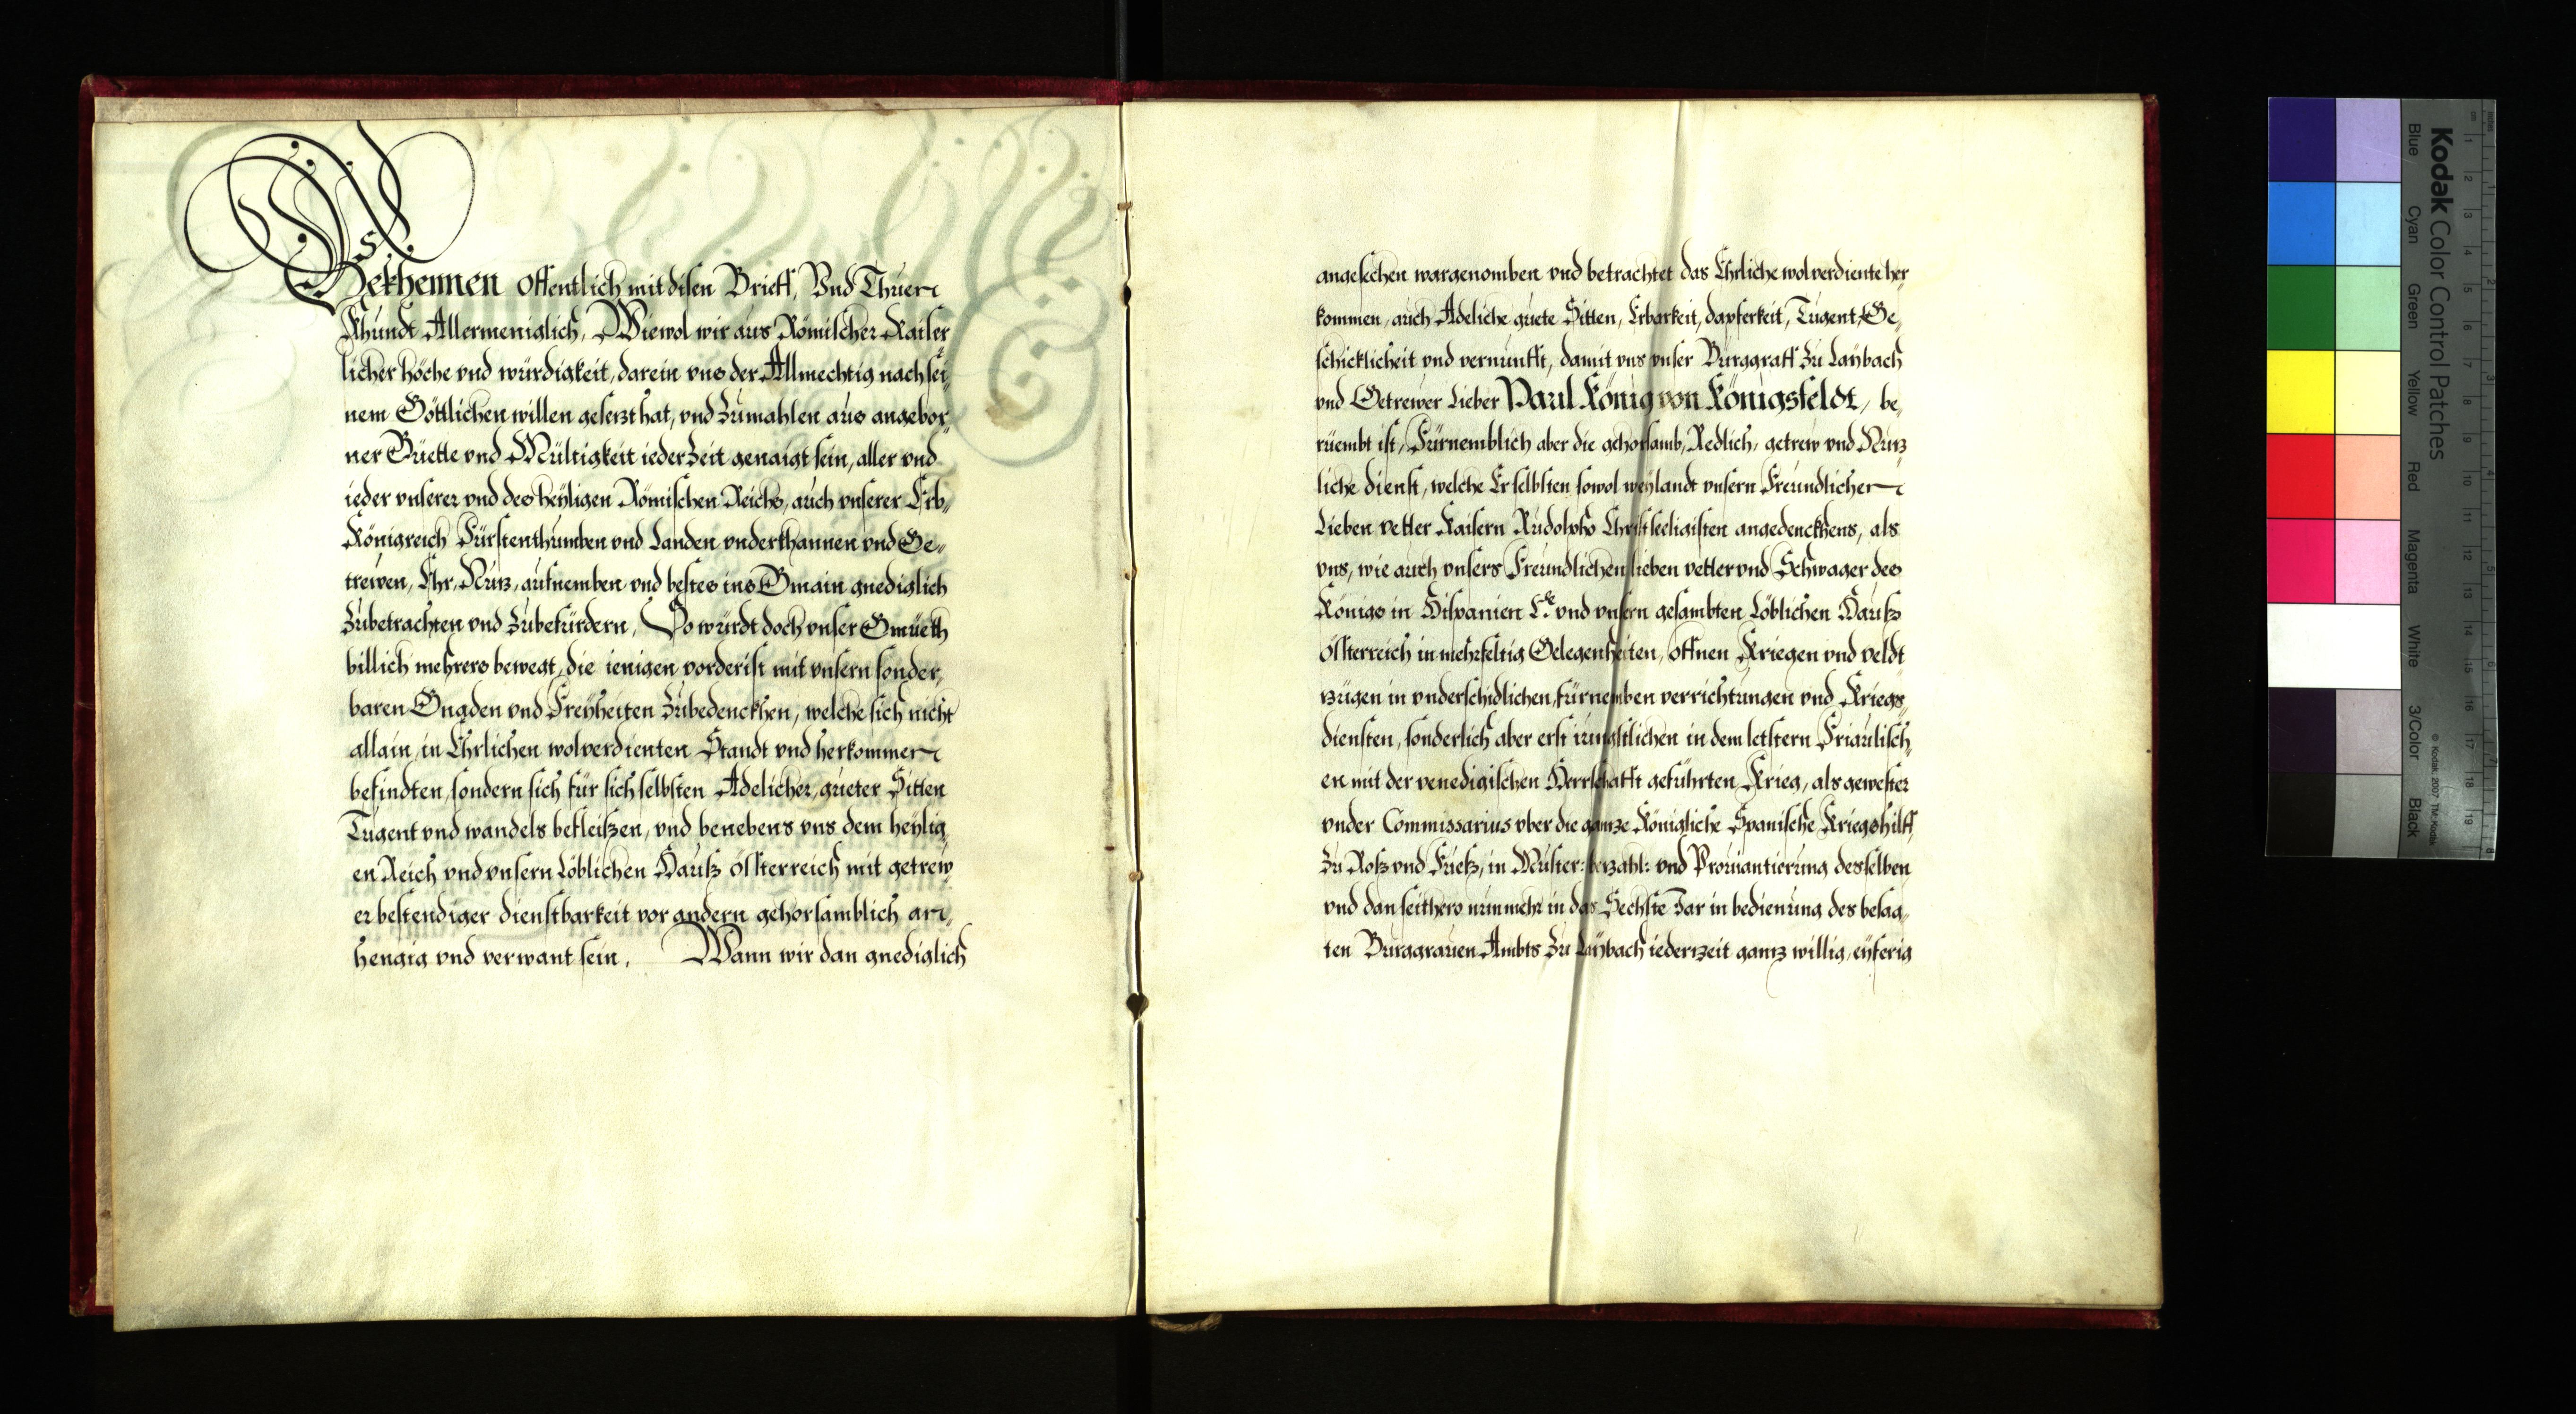 Bekhennen offentlich mit disen Brieff, Vnd Thuen
Khundt Allermeniglich, Wiewol wir aus Römischer Kaiser
licher höche vnd würdigkeit, darein vns der Allmechtig nach sei,
nem Göttlichen willen gesezt hat, vnd zumahlen aus angebor,
ner Güette vnd Mültigkeit ieder Zeit genaigt sein, aller vnd
ieder vnserer vnd des heyligen Römischen Reichs, auch vnserer Erb,
Königreich Fürstenthumben vnd Landen vnderthannen vnd Ge,
trewen, Ehr, Nutz, aufnemben vnd bestes ins Gmain gnediglich
Zubetrachten vnd Zubefürdern, So würdt doch vnser Gmüeth
billich mehrers bewegt, die ienigen vorderist mit vnsern sonder,
baren Gnaden vnd Freyheiten Zubedenckhen, welche sich nicht
allain, in Ehrlichen wolverdienten Standt vnd herkommen
befindten, sondern sich für sich selbsten Adelicher, gueter Sitten
Tugent vnd wandels befleißen, vnd benebens vns dem heylig,
en Reich vnd vnsern Löblichen Hauß össterreich mit getrew,
er bestendiger dienstbarkeit vor andern gehorsamblich an,
hengig vnd verwant sein. Wann wir dan gnediglich
angesechen wargenomben vnd betrachtet das Ehrliche wolverdiente her
kommen, auch Adeliche guete Sitten, Erbarkeit, dapferkeit, Tugent, Ge,
schicklicheit vnd vernunfft, damit vns vnser Burggraff Zu Laybach
vnd Getrewer Lieber Paul König von Königsfeldt, be,
rüembt ist, Fürnemblich aber die gehorsamb, Redlich, getrew vnd Nutz
liche dienst, welche Er selbsten sowol weylandt vnsern Freundlichen
Lieben vetter Kaisern Rudolpho Christseeligisten angedenckhens, als
vns, wie auch vnsers Freundlichen lieben vetter vnd Schwager des
Königs in Hispanien L. vnd vnsern gesambten Löblichen Hauß
össterreich in mehrfeltig Gelegenheiten, offnen Kriegen vnd veldt
zügen in vnderschidlichen, fürnemben verrichtungen vnd Kriegs,
diensten, sonderlich aber erst iungstlichen in dem letstern Friaulisch,
en mit der venedigischen Herrschafft geführten Krieg, als gewester
vnder Commissarius vber die gantze Königliche Spanische Kriegshilff,
Zu Roß vnd Fueß, in Muster: bezahl: vnd Prouiantierung desselben
vnd dan seithero nunmehr in das Sechste Jar in bedienung des besag,
ten Burggrauen Ambts Zu Laybach iederzeit gantz willig, eyferig
Kodak Color Control Patches
Blue Cyan Green Yellow Red Magenta White 3/Color Black
© Kodak, 2007 TM: Kodak